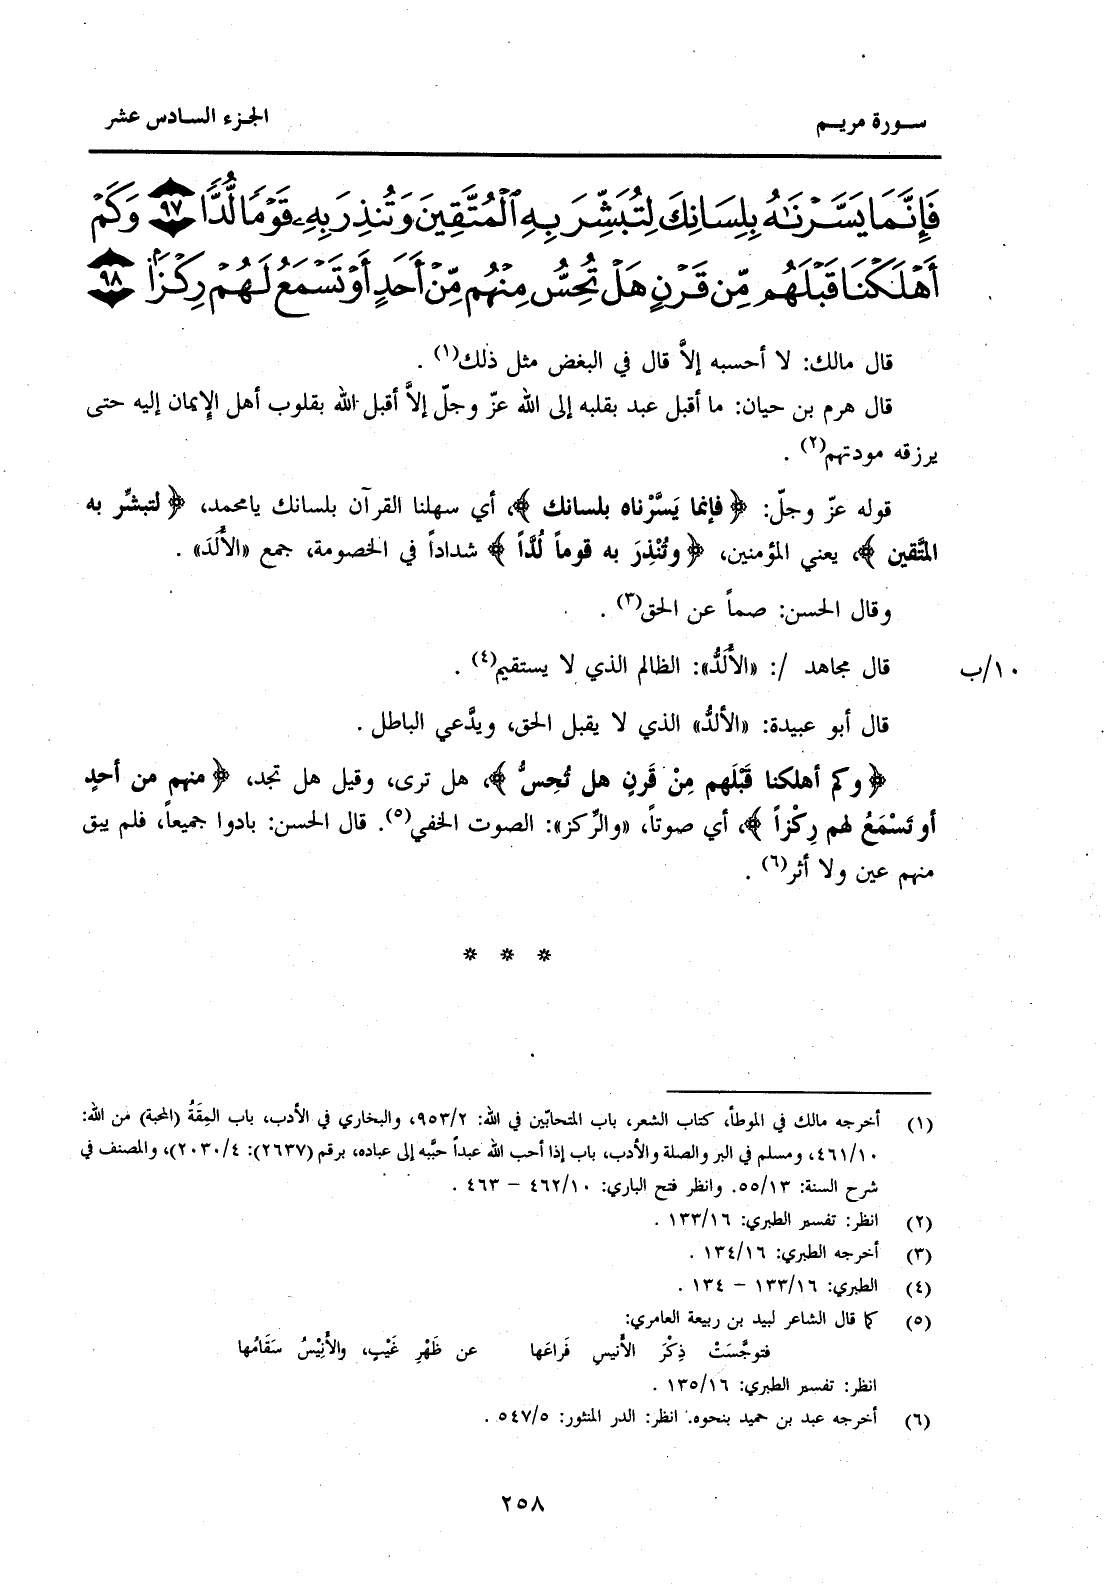 سورة مريم
الجزء السادس عشر
فَإِنَّمَا يَسَّرْنَاهُ بِلِسَانِكَ لِتُبَشِّرَ بِهِ ٱلْمُتَّقِينَ وَتُنذِرَ بِهِۦ قَوْمًا لُّدًّا ٩٧ وَكَمْ
أَهْلَكْنَا قَبْلَهُم مِّن قَرْنٍ هَلْ تُحِسُّ مِنْهُم مِّنْ أَحَدٍ أَوْ تَسْمَعُ لَهُمْ رِكْزًا ٩٨
قال مالك: لا أحسبه إلاَّ قال في البغض مثل ذلك(١) .
قال هرم بن حيان: ما أقبل عبد بقلبه إلى الله عزّ وجلّ إلاَّ أقبل الله بقلوب أهل الإيمان إليه حتى
يرزقه مودتهم(٢) .
قوله عزّ وجلّ: ﴿فإنما يَسَّرْناه بلسانك﴾، أي سهلنا القرآن بلسانك يامحمد، ﴿لتبشِّر به
المتَّقين﴾، يعني المؤمنين، ﴿وتُنْذِرَ به قوماً لُدَّاً﴾ شداداً في الخصومة، جمع «الأَلَدَ» .
وقال الحسن: صماً عن الحق(٣) .
١٠/ب
قال مجاهد /: «الأَلَدُّ»: الظالم الذي لا يستقيم(٤) .
قال أبو عبيدة: «الألدُّ» الذي لا يقبل الحق، ويدَّعي الباطل .
﴿وكم أهلكنا قَبْلَهم مِنْ قَرنٍ هل تُحِسُّ﴾، هل ترى، وقيل هل تجد، ﴿منهم من أحدٍ
أو تَسْمَعُ لهم رِكْزاً﴾، أي صوتاً، «والرِّكز»: الصوت الخفي(٥). قال الحسن: بادوا جميعاً، فلم يبق
منهم عين ولا أثر(٦) .
* * *
(١) أخرجه مالك في الموطأ، كتاب الشعر، باب المتحابّين في الله: ٩٥٣/٢، والبخاري في الأدب، باب المِقَةُ (المحبة) من الله:
٤٦١/١٠، ومسلم في البر والصلة والأدب، باب إذا أحب الله عبداً حبَّبه إلى عباده، برقم (٢٦٣٧): ٢٠٣٠/٤)، والمصنف في
شرح السنة: ٥٥/١٣. وانظر فتح الباري: ٤٦٢/١٠ – ٤٦٣ .
(٢) انظر: تفسير الطبري: ١٣٣/١٦ .
(٣) أخرجه الطبري: ١٣٤/١٦ .
(٤) الطبري: ١٣٣/١٦ – ١٣٤ .
(٥) كما قال الشاعر لبيد بن ربيعة العامري:
فتوجَّسَتْ ذِكْرَ الأَنيسِ فَراعَها عن ظَهْرِ غَيْبٍ، والأَنِيْسُ سَقَامُها
انظر: تفسير الطبري: ١٣٥/١٦ .
(٦) أخرجه عبد بن حميد بنحوه. انظر: الدر المنثور: ٥٤٧/٥ .
٢٥٨